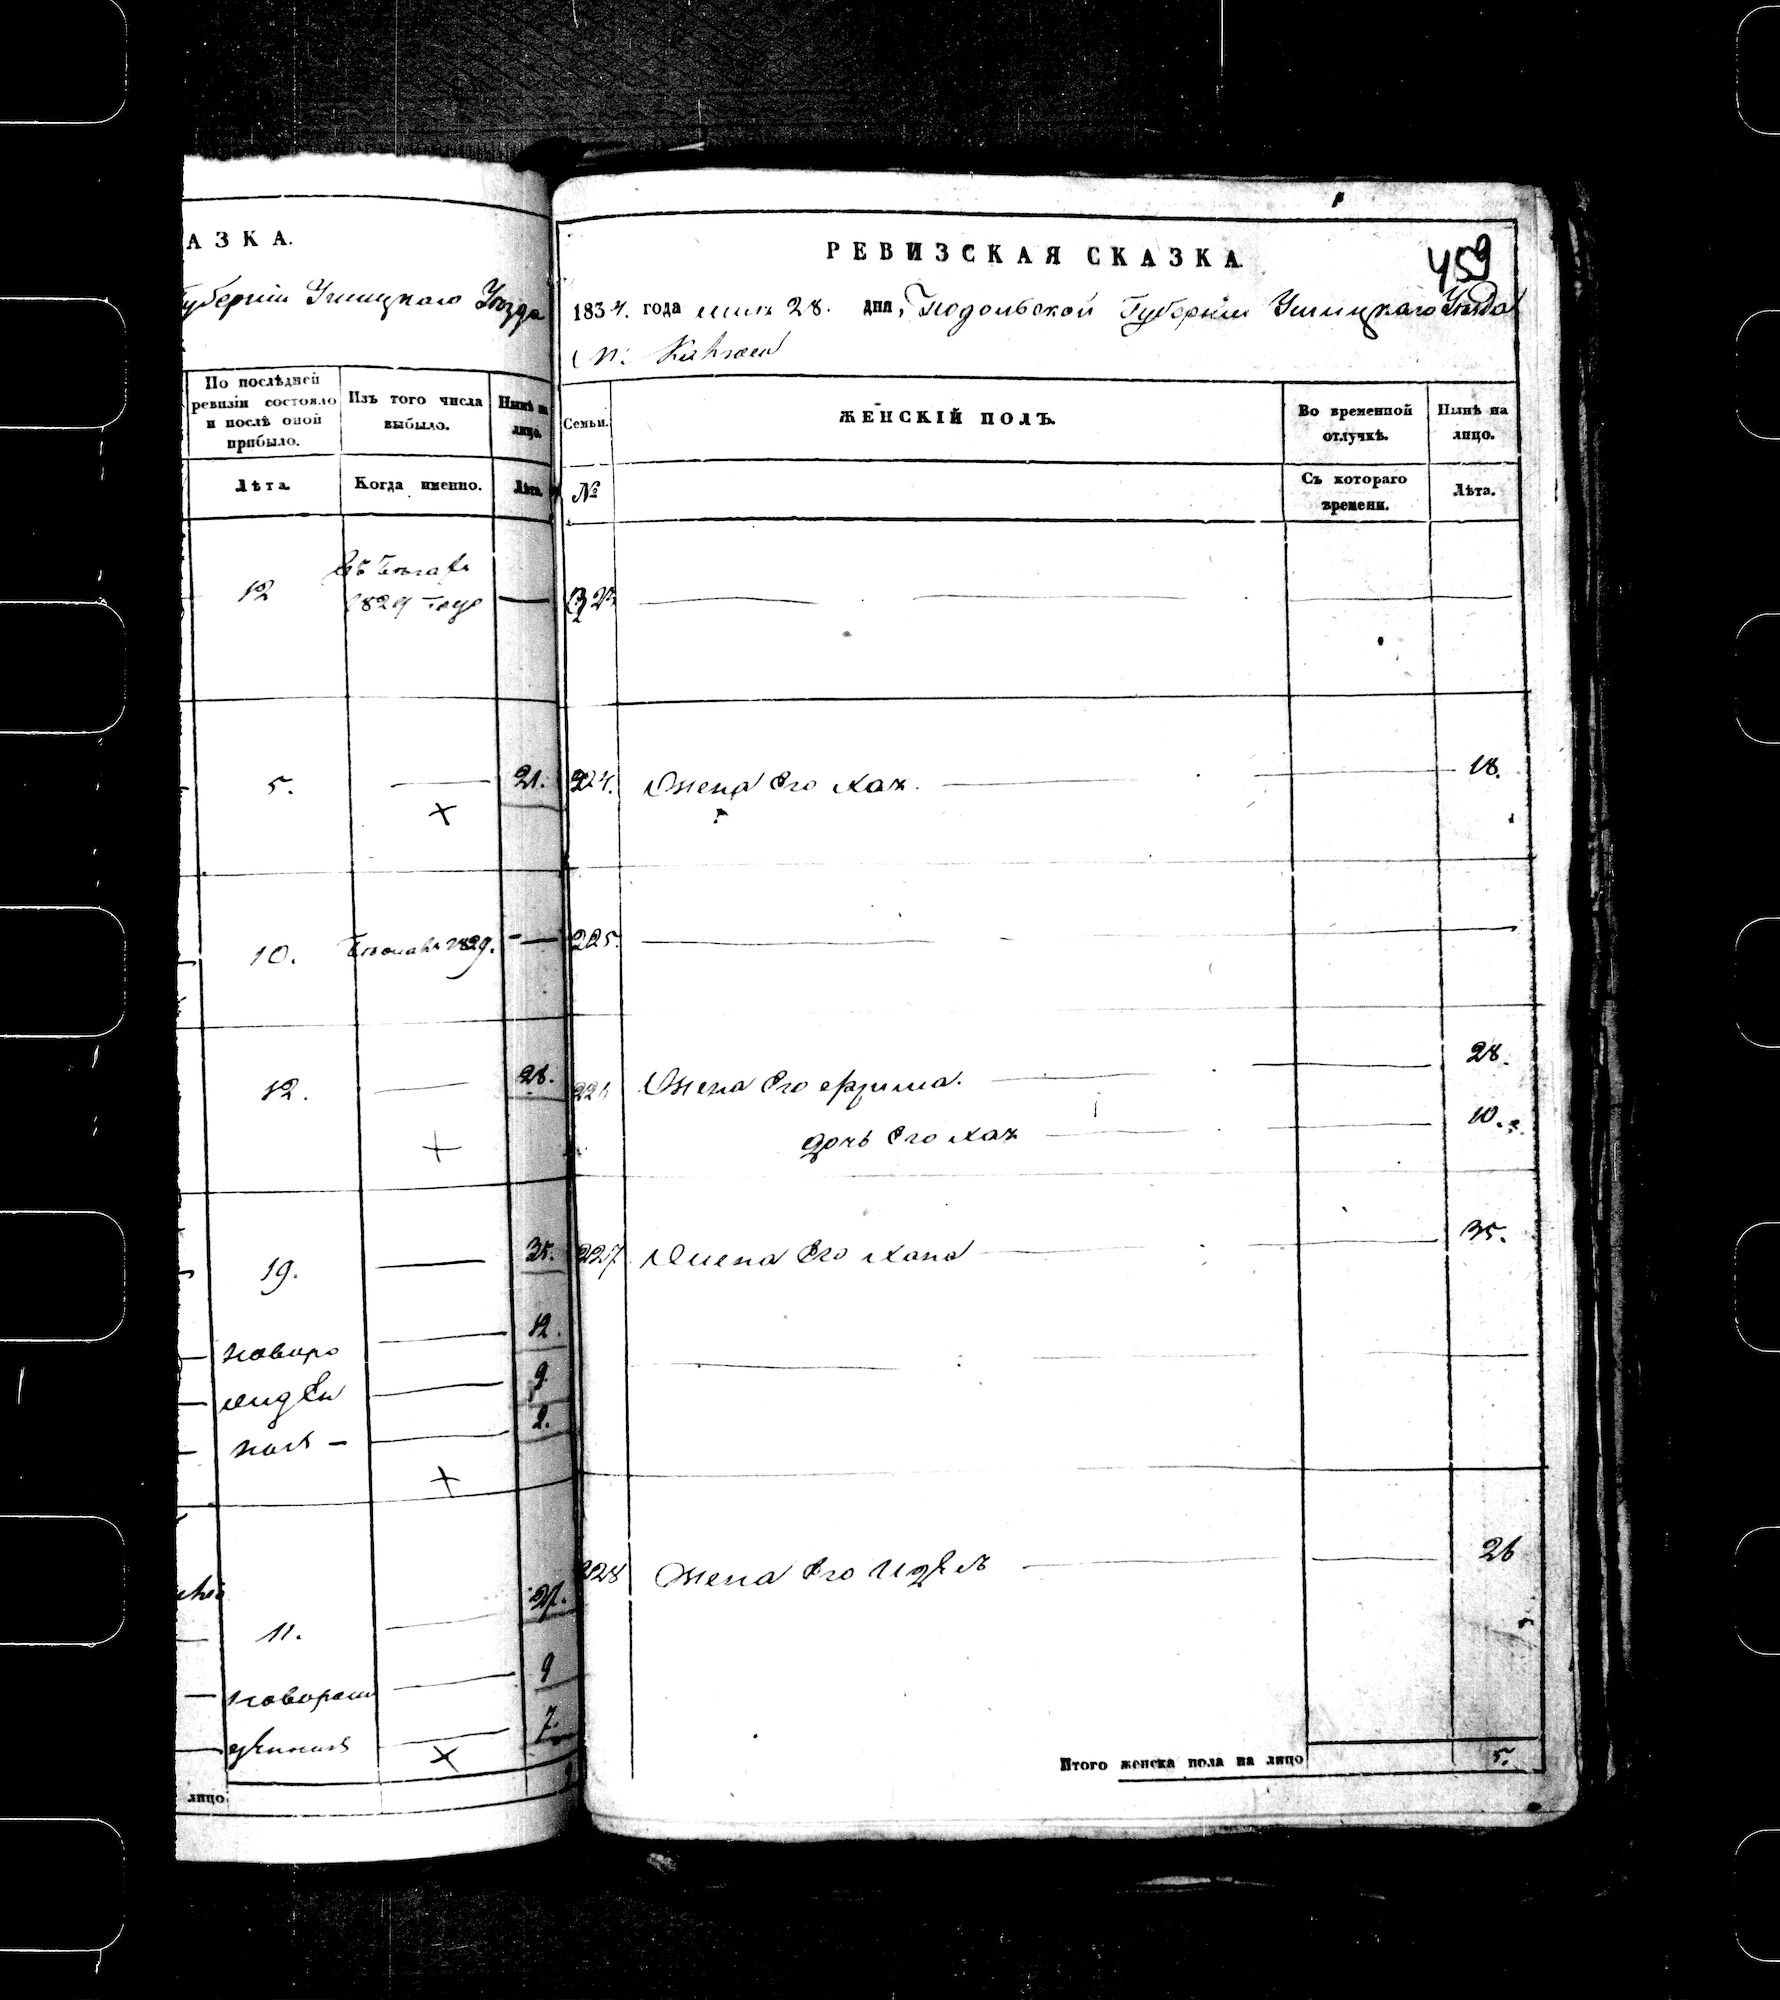 АЗКА.
Губерніи Ушицкаго Уѣзда
По послѣдней ревизіи состояло и послѣ оной прибыло.
Изъ того числа выбыло.
Нынѣ на лицо.
Лѣта.
Когда именно.
Лѣта.
12
1829 году —
5. — 21.
×
10. 1829. —
12. — 28.
+
19. — 35.
— новоро — 12.
— — 9
— — — 2.
+
11. — 27.
— — 9
— — 7.
×
лицо
459
РЕВИЗСКАЯ СКАЗКА
1834. года 28. дня, Подольской Губерніи Ушицкаго Уѣзда
М:
Семьи.
ЖЕНСКІЙ ПОЛЪ.
Во временной отлучкѣ.
Нынѣ на лицо.
№
Съ котораго времени.
Лѣта.
223 — — —
224. Жена Его Хая. — — 18.
225. — — —
226 Жена Его Фрима. — — 28.
дочь Его Хая — — 10.
227 Жена Его Хана — — 35.
— — —
228 Жена Его — — 26
Итого женска пола на лицо 5.